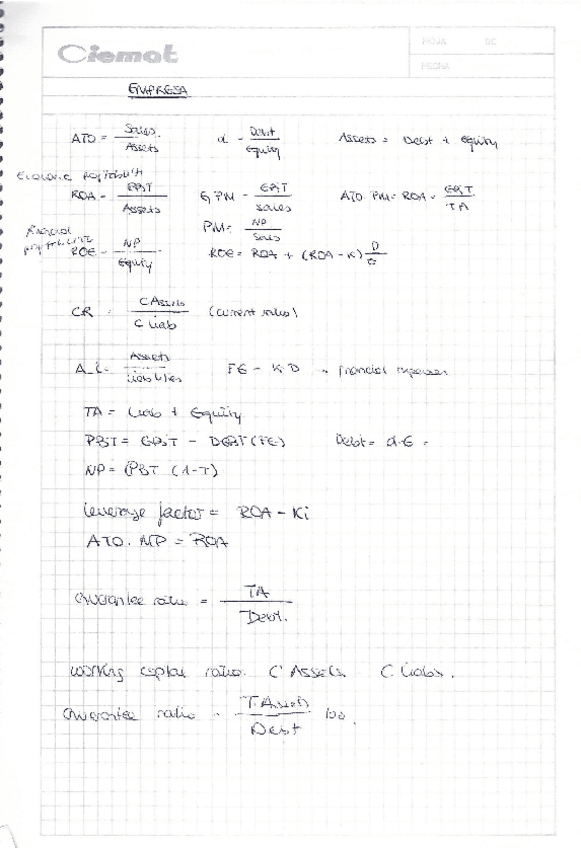 Ciemat
HOJA DE
FECHA
EMPRESA
ATO = Sales / Assets   d = Debt / Equity   Assets = Debt + Equity
Economic profitability
ROA = EBIT / Assets   GPM = EBIT / Sales   ATO · PM = ROA = EBIT / TA
PM = NP / Sales
Financial profitability
ROE = NP / Equity   ROE = ROA + (ROA - K) D / E
CR = C Assets / C Liab (current ratio)
A_L = Assets / Liabilities   FE = K·D → financial expenses
TA = Liab + Equity
PBT = EBIT - DEBT (FE)   Debt = d·E =
NP = (PBT (1-T)
Leverage factor = ROA - Ki
ATO · NP = ROA
Guarantee ratio = TA / Debt.
Working capital ratio. C Assets. C Liabs.
Guarantee ratio = T Assets / Debt 100.